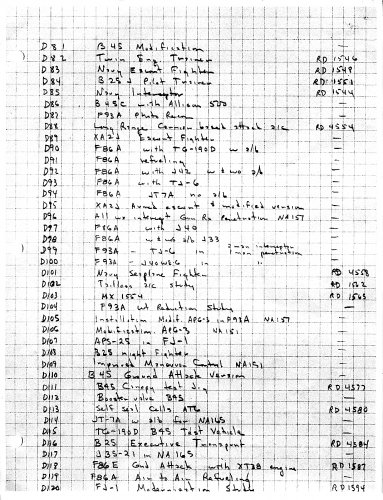 D81 B 45 Modification —
D82 Twin Eng Trainer RD 1546
D83 Navy Escort Fighter RD 1548
D84 B25J Pilot Trainer RD 1551
D85 Navy Interceptor RD 1544
D86 B45C with Allison 500 —
D87 F93A Photo Recon —
D88 Long Range Carrier based attack a/c RD 4554
D89 XA2J Escort Fighter —
D90 F86A with TG-190D w a/b —
D91 F86A refueling —
D92 F86A with J42 w & wo a/b —
D93 F86A with TJ-6 —
D94 F86A JT7A no a/b —
D95 XA2J escort & modified version —
D96 All wx intercept Gun Penetration NA157 —
D97 F86A with J40 —
D98 F86A w & wo a/b J33 —
D99 F93A - TJ-6 in 2 man interceptor
D100 F93A - J40WE6 in 1 man penetration
D101 Navy Seaplane Fighter RD 4558
D102 Tailless a/c study RD 1562
D103 MX 1554 RD 1563
D104 F93A wt Reduction Study —
D105 Installation Modif. APG-3 in F93A NA157 —
D106 Mobilization APG-3 NA151 —
D107 APS-25 in FJ-1 —
D108 B25 night Fighter —
D109 Improved Maneuver Control NA151 —
D110 B 45 Ground Attack Version —
D111 B45 Canopy test Jig RD 4577
D112 Booster valve B45 —
D113 Self Seal Cells AT6 RD 4580
D114 JT-7A w a/b for NA165 —
D115 TG-190D B45 Test Vehicle —
D116 B25 Executive Transport RD 4584
D117 J35-21 in NA 165 —
D118 F86E Gnd Attack with XT38 engine RD 1587
D119 F86A Air to Air Refueling —
D120 FJ-1 Modernization Study RD 1594